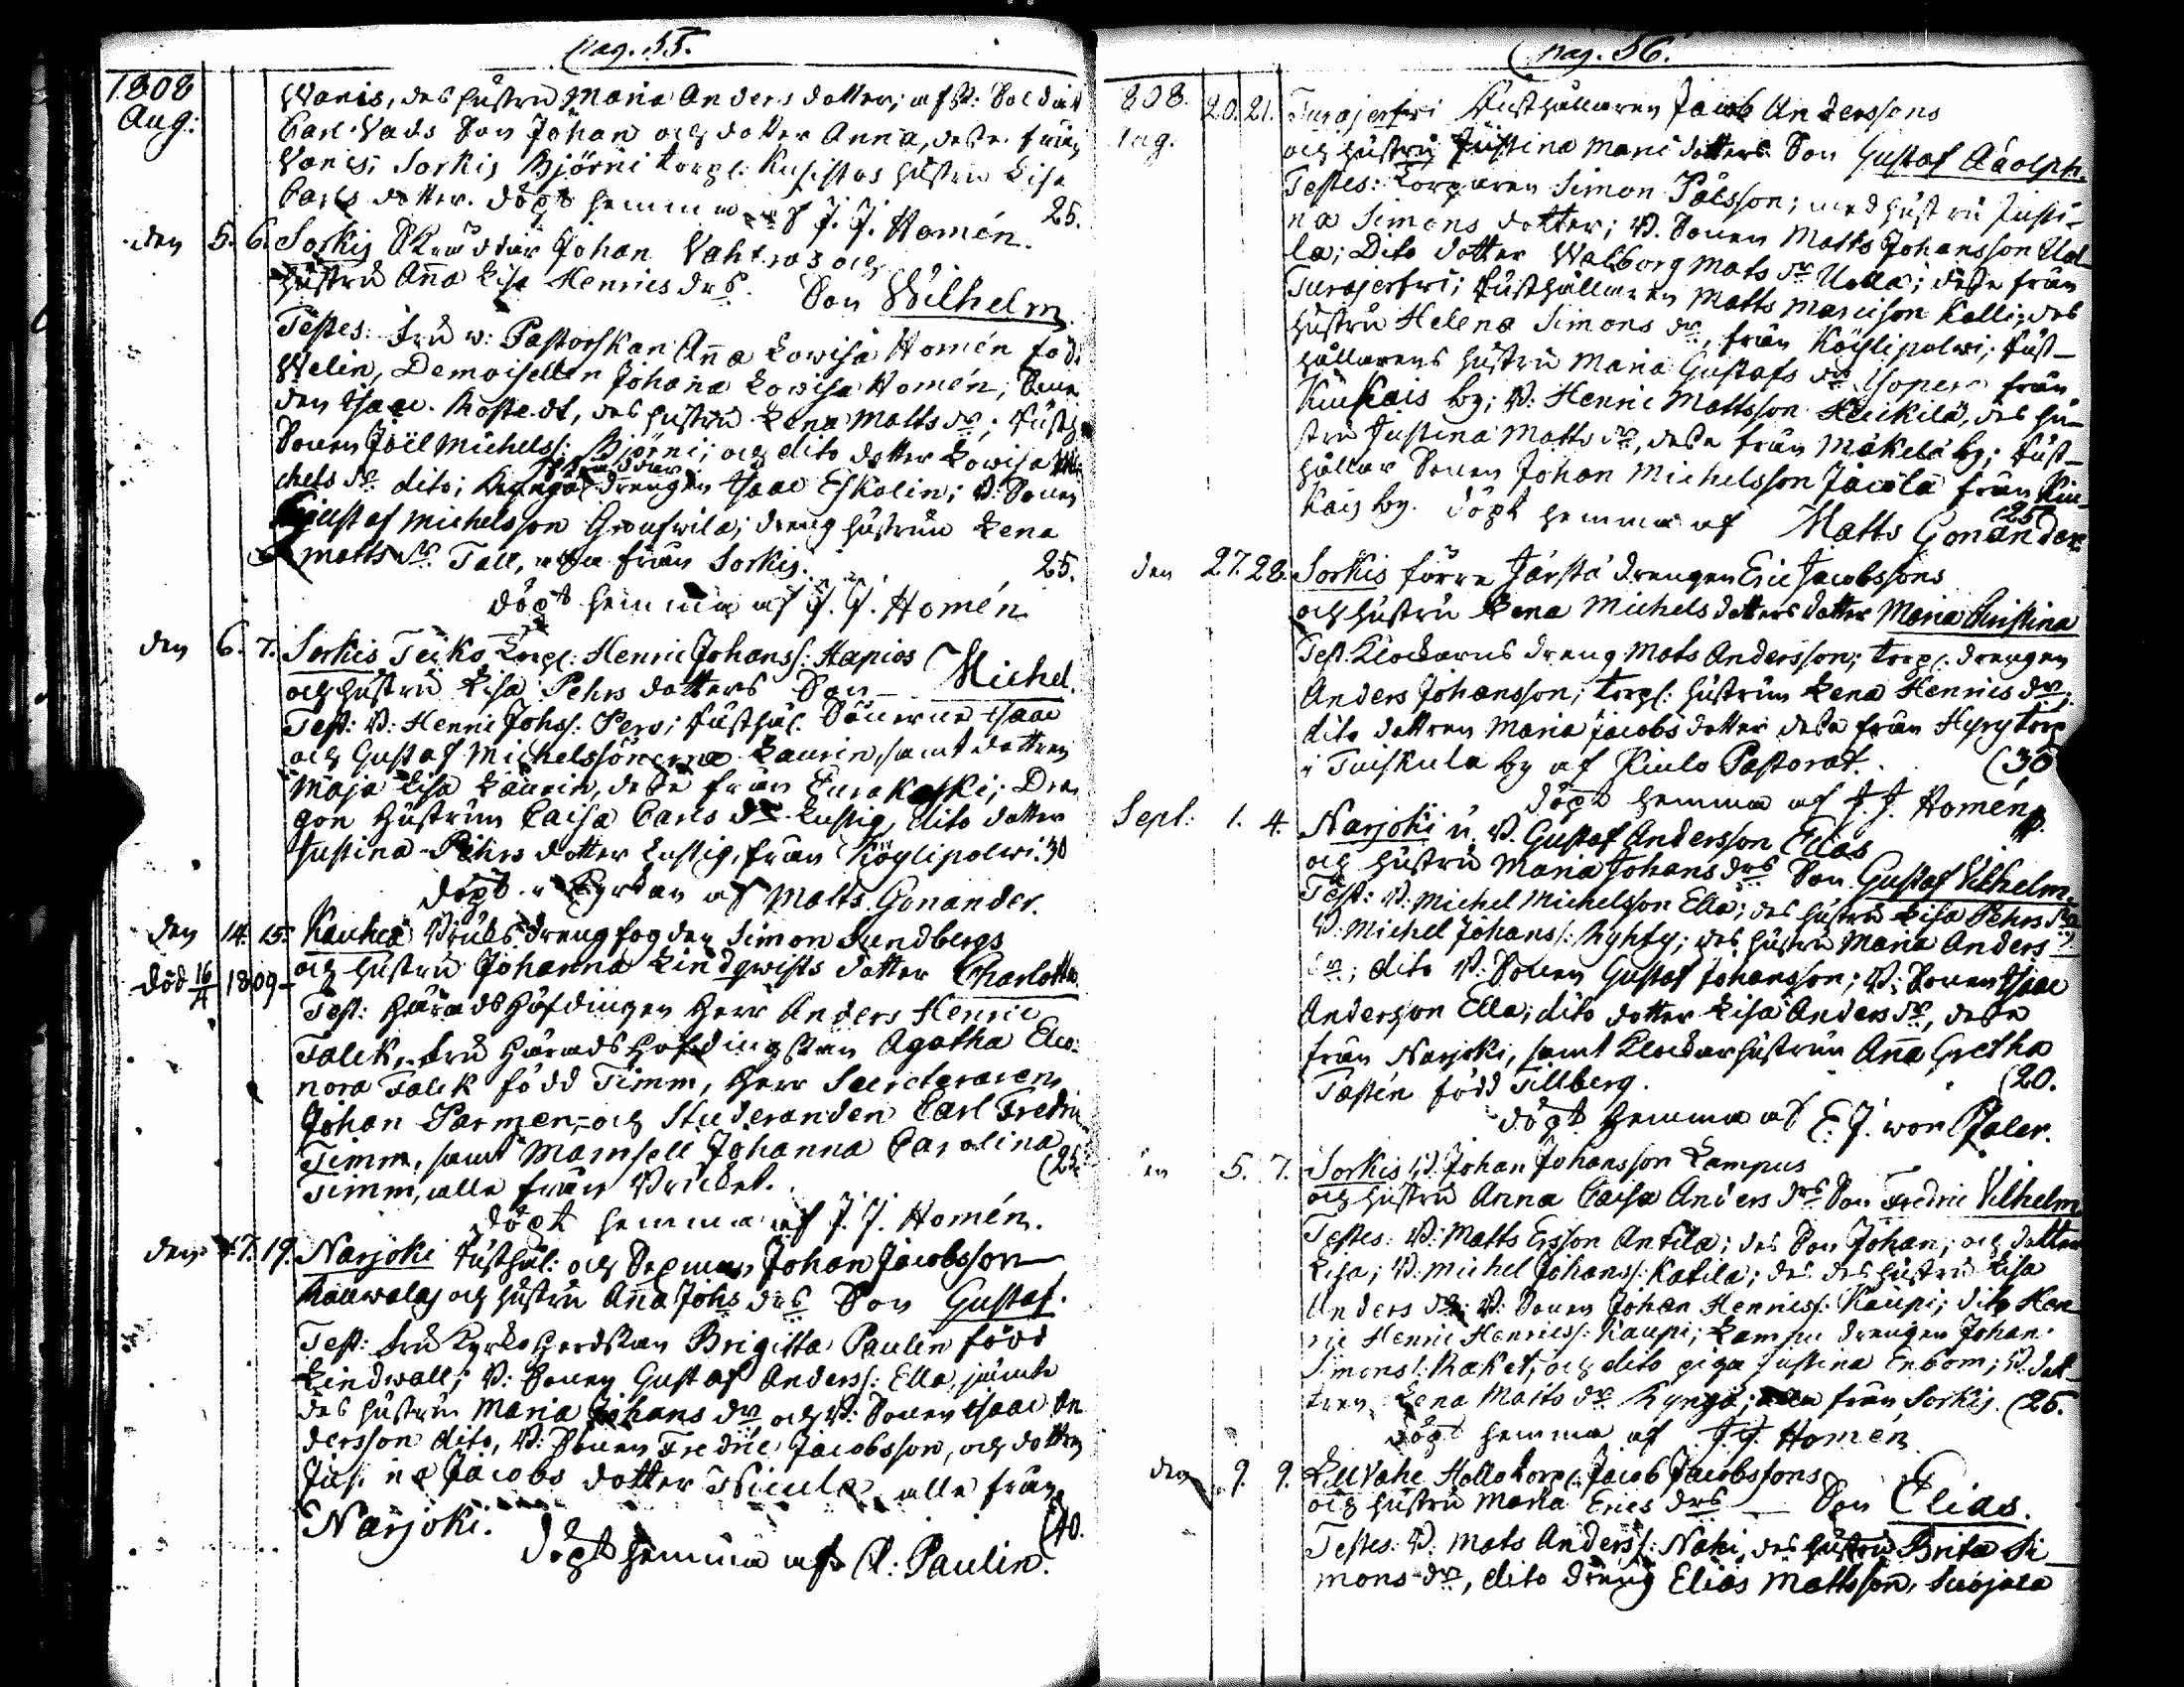 pag. 55.
1808
Aug:
Wanis, des hustru Maria Anders dotter; afsk: Soldat
Carl Vads Son Johan och dotter Anna, desse från
Vanis; Sorkis Björni torp: hustru Lisa
Carls dotter. döpt hemma af J. J. Homén. 25.
den 5. 6. Sorkis Skräddar Johan Vahtros och
hustru Anna Lisa Henrics drs. Son Wilhelm.
Testes: Fru v: Pastorskan Anna Lowisa Homén född
Welin, Demoisellen Johana Lowisa Homén;
den Isaac Rostedt, des hustru Lena Matts dr; Rusth
Sonen Joël Michelss: Björni; och dito dotter Lowisa Mi-
chels dr dito; drengen Isaac Eskolin; B: Sonen
Gustaf Michelsson Groufwila; dreng hustrun Lena
Matts dr Tall, alla från Sorkis. 25.
döpt hemma af J. J. Homén
den 6. 7. Sorkis Teiko Torp: Henric Johanss: Hapios
och hustru Lisa Pehrs dotters Son Michel.
Test: B: Henric Johss: Pero; Rusthål. Sönerne Isaac
och Gustaf Michelssönerna Laurin, samt dottren
Maja Lisa Laurin, desse från Eurakoski; Dra-
gon hustrun Caisa Carls dr Lustig, dito dotter
Justina Pehrs dotter Lustig, från Köylipolwi. 30
döpt i Kyrkan af Matts Gonander.
den 14. 15. Kauhea Bruks drengfogden Simon Sundbergs
och hustru Johanna Lindqwists dotter Charlotta.
död 16/4 1809
Test: Häradshöfdingen Herr Anders Henric
Falck, Fru Häradshöfdingskan Agatha Eleo-
nora Falck född Timm, Herr Secreteraren
Johan Parmen, och Studeranden Carl Fredric
Timm, samt Mamsell Johanna Carolina
Timm, alla från Bruket. (25.
döpt hemma af J. J. Homén.
den 17. 19. Narjoki Rusthål: och Sexman Johan Jacobsson
Kauwalas och hustru Anna Johs drs Son Gustaf.
Test: Fru Kyrkoherdskan Brigitta Paulin född
Lindwall; B: Sonen Gustaf Anderss: Ella, jämte
des hustru Maria Johans dr och B: Sonen Isaac An
dersson dito, B: Sonen Fredric Jacobsson, och dottren
Justina Jacobs dotter alla från
Narjoki. (40.
döpt hemma af Paulin.
pag. 56.
808. Aug.
20. 21. Turajerfwi Rusthållaren Jacob Anderssons
och hustru Justina Maria dotters Son Gustaf Adolph.
Testes: Torparen Simon Pålsson; med hustru Justi-
na Simons dotter; B. Sonen Matts Johansson Uol-
la; Dito dotter Walborg Mats dr Uolla; desse från
Turajerfwi; Rusthållaren Matts Matsson Kalli; des
hustru Helena Simons dr, från Köylipolwi; Rust-
hållarens hustru Maria Gustafs dr Isopere från
Kiukais by; B: Henric Mattsson Heikilä, des hu-
stru Justina Matts dr, desse från Mäkelä by; Rust-
hållar Sonen Johan Michelsson Jacola från Kiu-
kais by. döpt hemma af Matts Gonander 25
den 27. 28. Sorkis förre Jårsta drengen Eric Jacobssons
och hustru Lena Michels dotters dotter Maria Christina
Test. Klockarens dreng Mats Andersson; torp: drengen
Anders Johansson; torp: hustrun Lena Henrics dr;
dito dottren Maria Jacobs dotter desse från Hyry torp
i Tuiskula by af Kiulo Pastorat. (30
döpt hemma af J. J. Homén.
Sept: 1. 4. Narjoki u. B. Gustaf Andersson Ellas
och hustru Maria Johans drs Son Gustaf Vilhelm.
Test: B: Michel Michelsson Ella; des hustru Lisa Pehrs dr
B: Michel Johanss: Ryhty; des hustru Maria Anders
dr; dito B: Sonen Gustaf Johansson; B: Sonen Isaac
Andersson Ella; dito dotter Lisa Anders dr, desse
från Narjoki, samt Klockarhustrun Anna Gretha
Tastén född Tillberg. (20.
döpt hemma af E. J. von Pfaler.
den 5. 7. Sorkis B. Johan Johansson Lampus
och hustru Anna Caisa Anders drs Son Fredric Vilhelm
Testes: B: Matts Ersson Antila; des Son Johan; och dotter
Lisa; B: Michel Johanss: Katila; des hustru Lisa
Anders dr; B: Sonen Johan Henricss: Kaupi; dito Hen-
ric Henric Henricss: Kaupi; Lampu drengen Johan
Simonss: Raket; och dito piga Justina Enbom; B: dot-
tren Lena Matts dr Rynga; alla från Sorkis. (25.
döpt hemma af J. J. Homén
den 9. 9. Ylivahe Hollo torp: Jacob Jacobssons
och hustru Maria Erics drs Son Elias.
Testes: B: Mats Anderss: Nahi, des hustru Brita Si
mons dr, dito dreng Elias Mattsson, Suojala